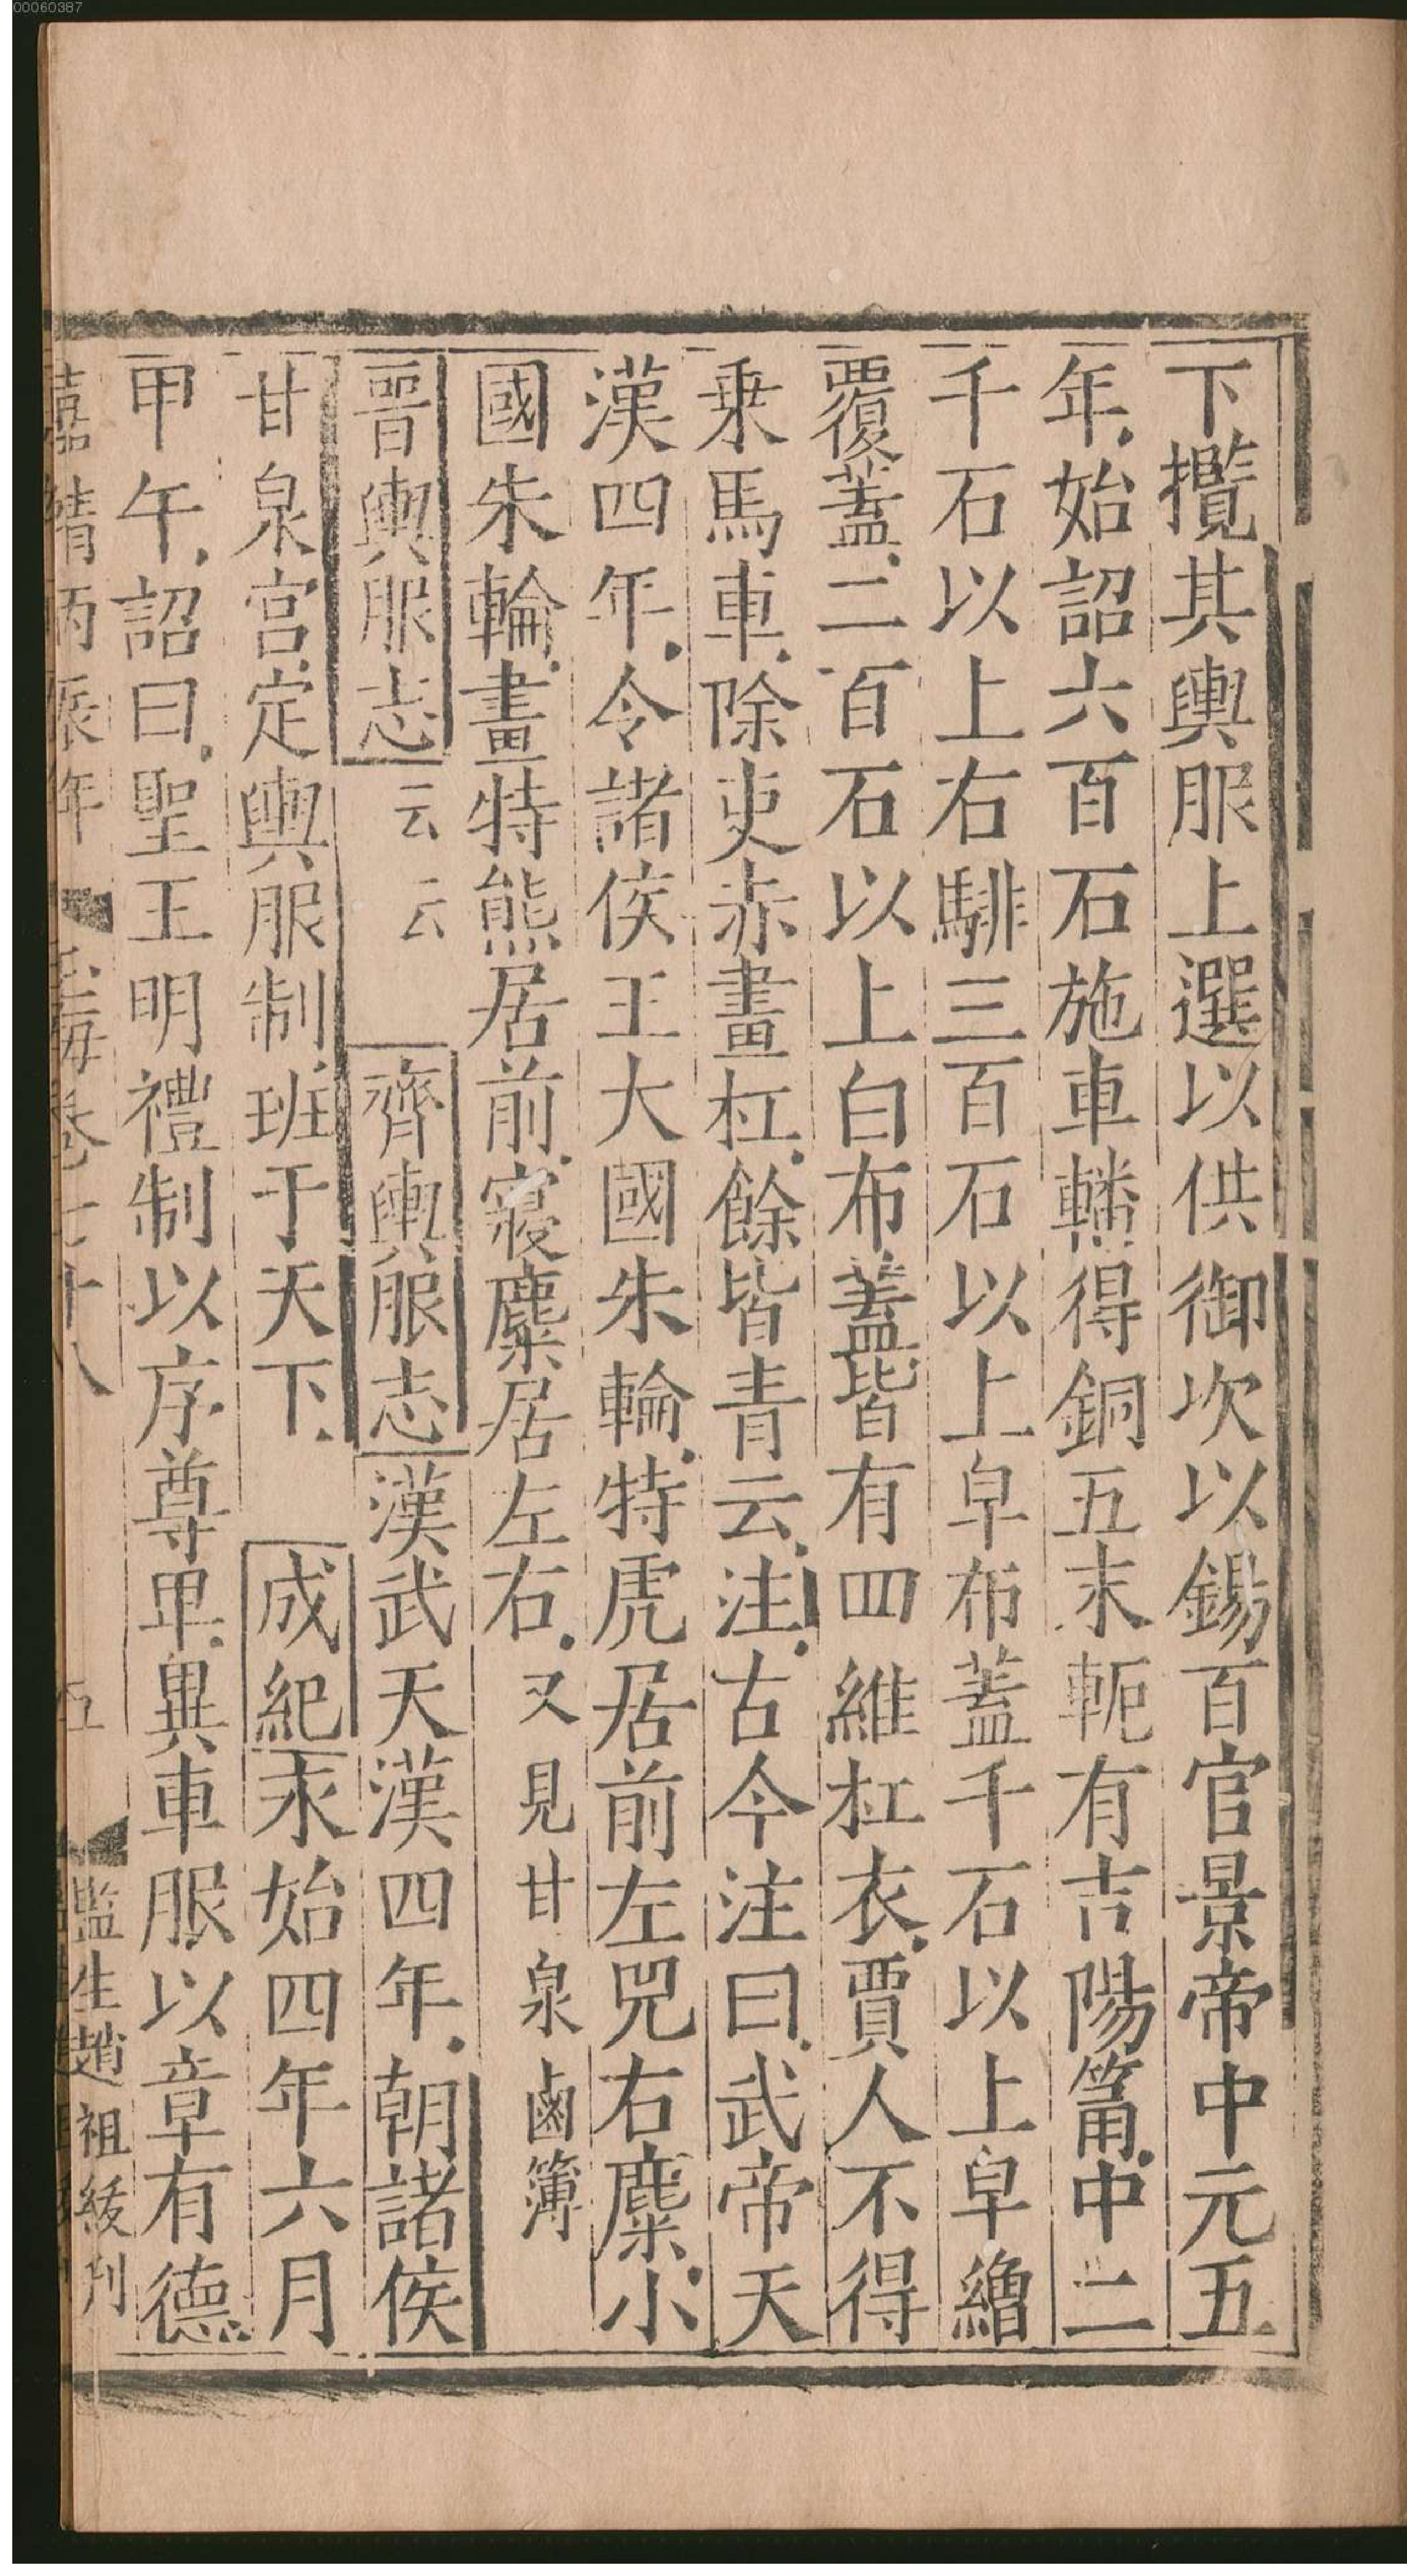 00060387
下攬其輿服上選以供御次以錫百官景帝中元五
年始詔六百石施車轓得銅五末軛有吉陽筩中二
千石以上右騑三百石以上皁布蓋千石以上皁繒
覆蓋二百石以上白布蓋皆有四維杠衣賈人不得
乗馬車除吏赤畫杠餘皆青云注古今注曰武帝天
漢四年令諸侯王大國朱輪特虎居前左兕右麋小
國朱輪畫特熊居前寢麋居左右又見甘泉鹵簿
晉輿服志云云齊輿服志漢武天漢四年朝諸侯
甘泉宮定輿服制班于天下成紀永始四年六月
甲午詔曰聖王明禮制以序尊卑異車服以章有德
嘉靖丙辰年 玉海卷七十八 五 監生趙祖綬刊